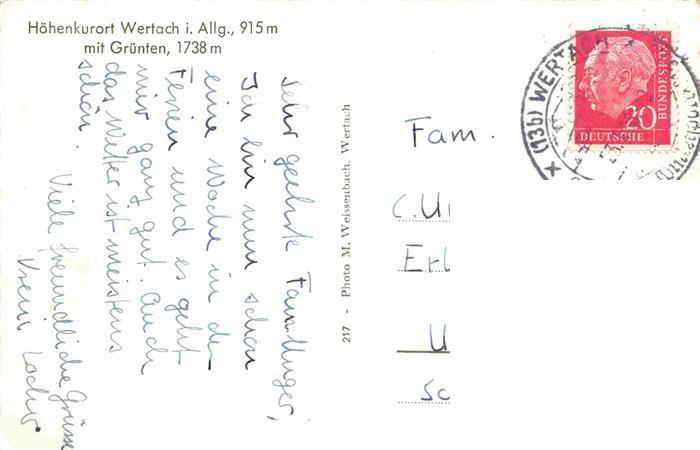 Höhenkurort Wertach i. Allg., 915 m
mit Grünten, 1738 m
Sehr geehrte Fam.
Ich bin nun schon
eine Woche in den
Ferien und es geht
mir ganz gut. Auch
das Wetter ist meistens
schön.
Viele freundliche Grüsse
Vreni
217 - Photo M. Weissenbach, Wertach
Fam.
C. 
Erl
U
Sc
(13b) WERTACH
20
DEUTSCHE
BUNDESPOST